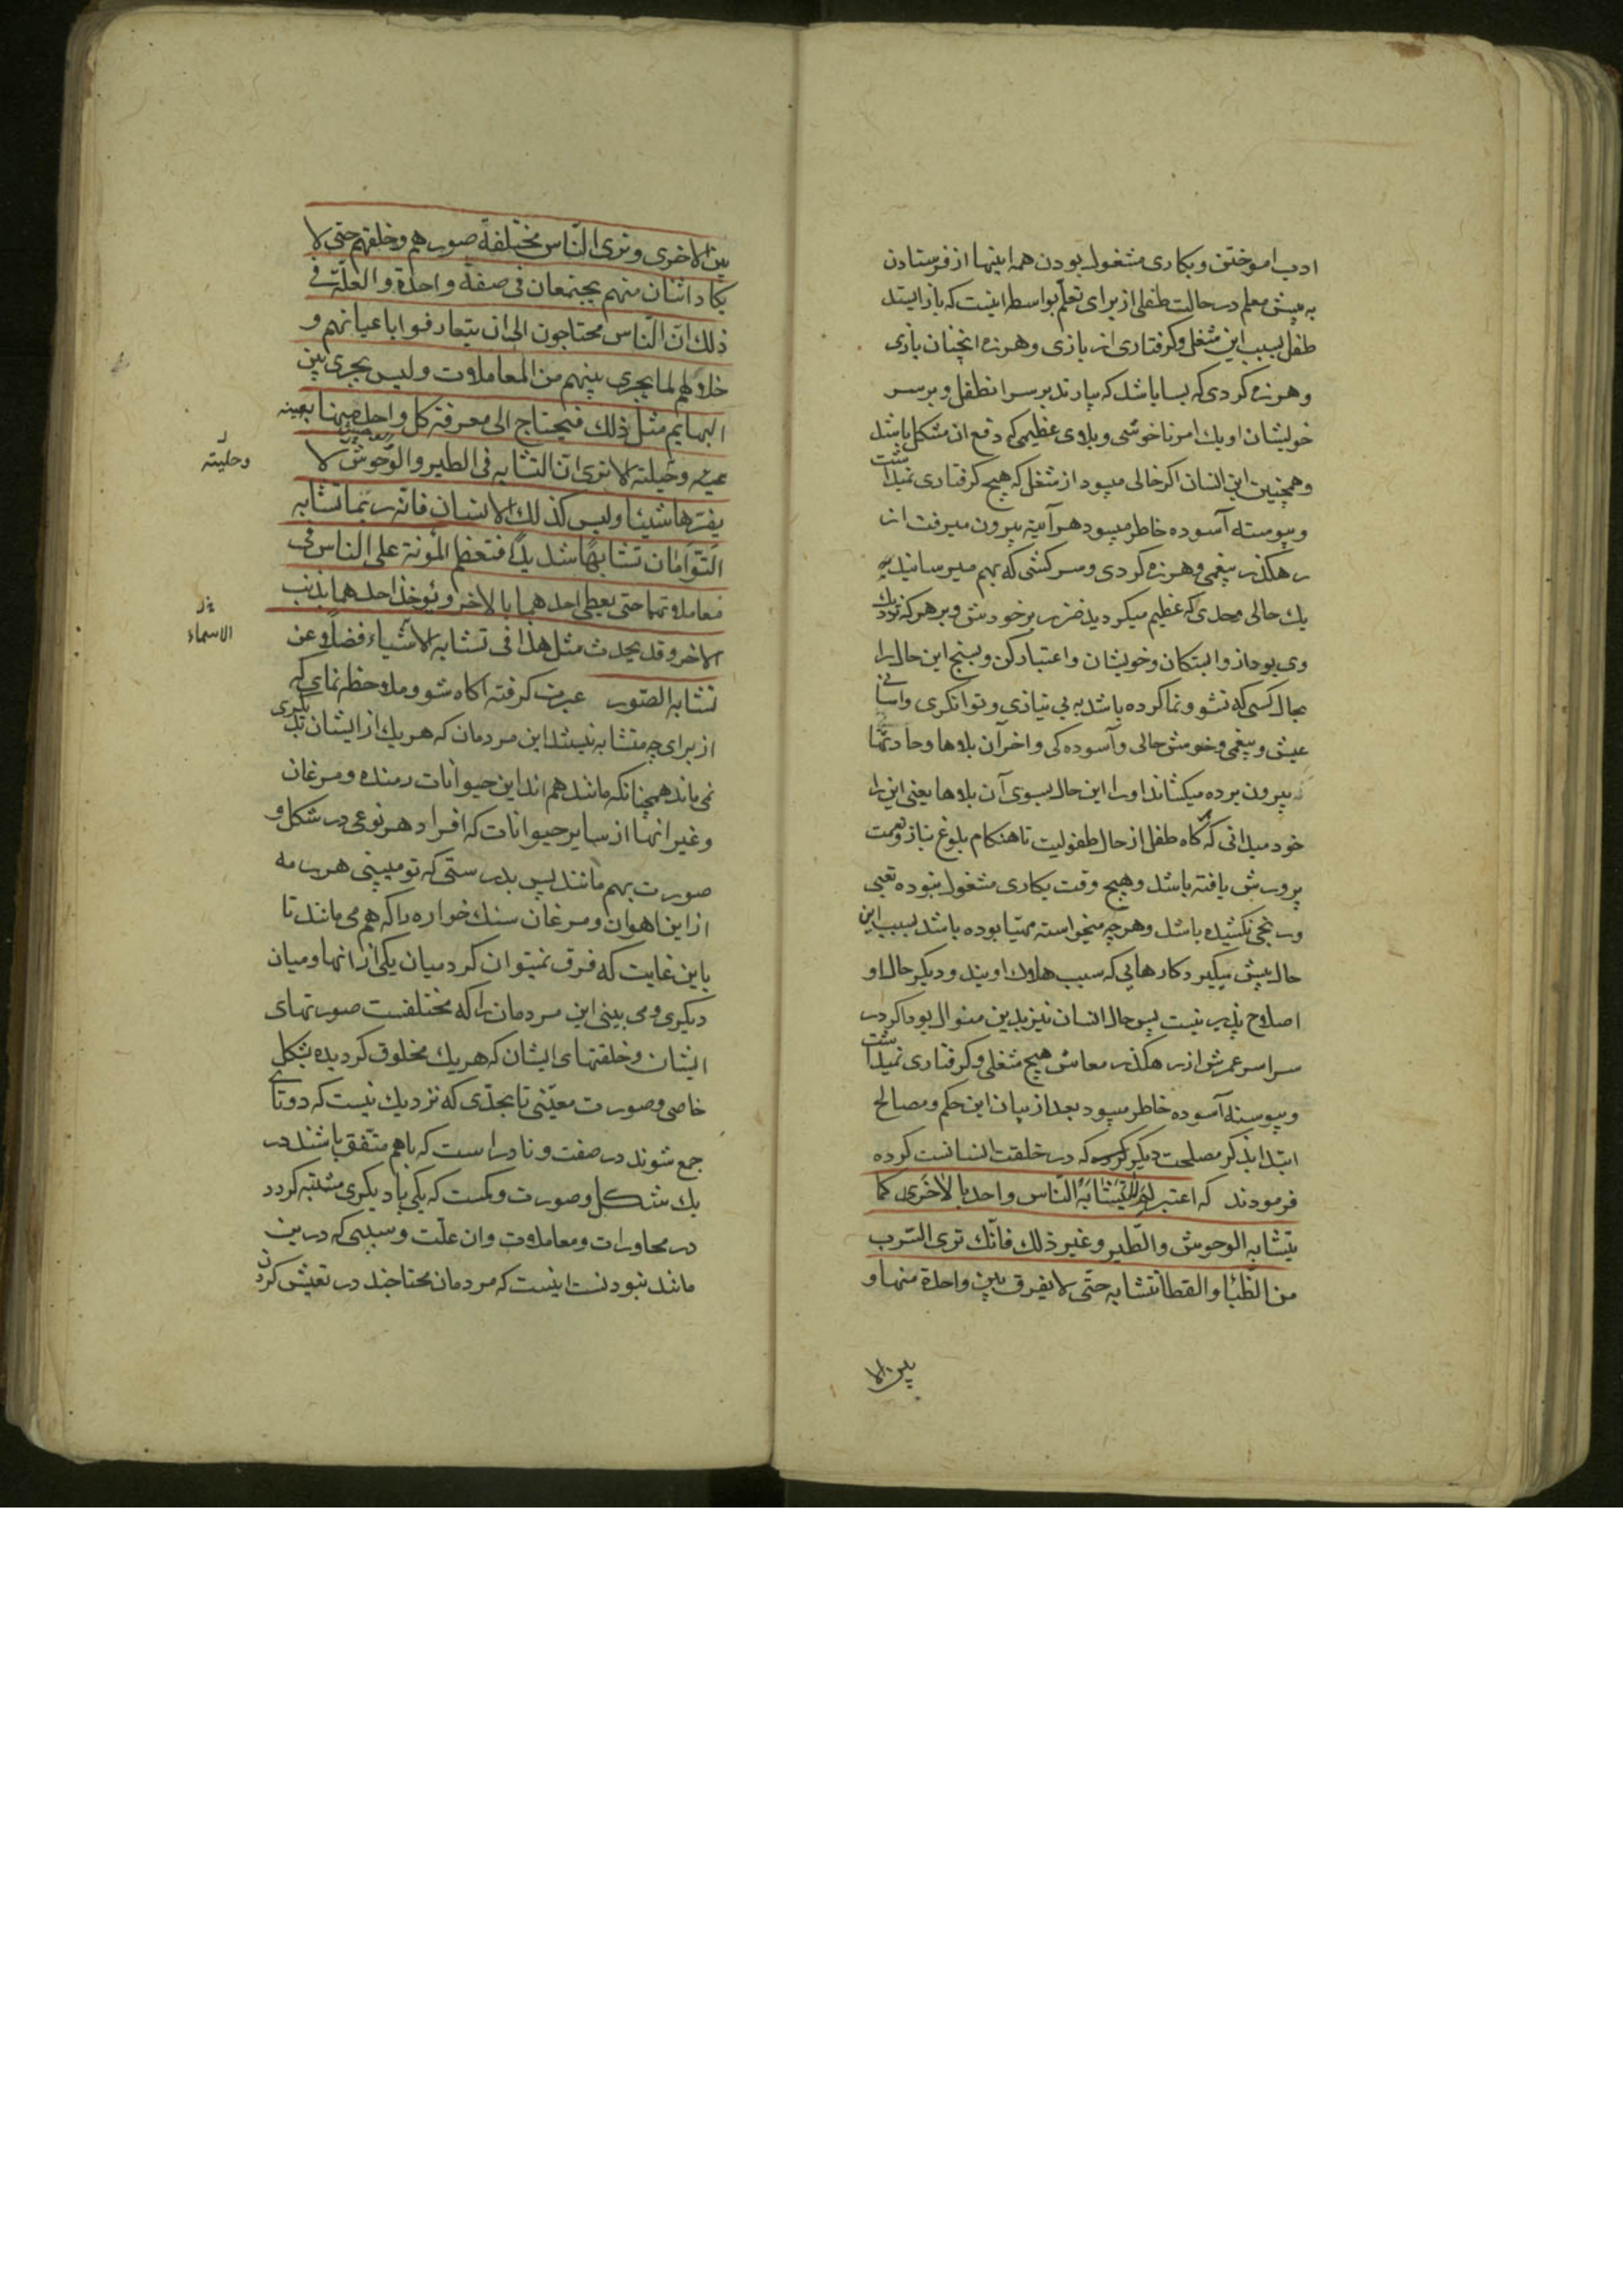 ادب اموختن و بکاری مشغول بودن همه اینها از فرستادن
به پیش معلم در حالت طفلی از برای تعلّم بواسطه اینست که باز ایستد
طفل بسبب این شغل و کرفتاری از بازی و هرزه انچنان بازی
و هرزه کردی که بسا باشد که بیارند بر سر انطفل و بر سر
خویشان او یك امر ناخوشی و بلای عظیمی که دفع ان مشکل باشد
و همچنین این انسان اکر خالی میبود از شغل که هیچ کرفتاری نمیداشت
و پیوسته آسوده خاطر میبود هر آینه بیرون میرفت از
رهکذر بیغمی و هرزه کردی و سرکشی که بهم میرسانید به
یك حالی و حدی که عظیم میکردید ضرر بر خودش و بر هر که نزدیك
وی بود از وابستکان و خویشان و اعتبار کن و بسنج این حال را
بحال کسی که نشو و نما کرده باشد به بی نیازی و توانکری و اسانی
عیش و بیغمی و خوش حالی و آسوده کی و اخر آن بلاها و حادثها
بیرون برده میکشاند او را این حال بسوی آن بلاها یعنی این را
خود میدانی که کاه طفل از حال طفولیت تا هنکام بلوغ بناز و نعمت
پرورش یافته باشد و هیچ وقت بکاری مشغول نبوده تعبی
و رنجی نکشیده باشد و هر چه میخواسته مهیّا بوده باشد بسبب این
حال پیش میکیرد کارهایی که سبب هلاك اویند و دیکر حال او
اصلاح پذیر نیست پس حال انسان نیز بدین منوال بود اکر در
سراسر عمرش از رهکذر معاش هیچ شغلی و کرفتاری نمیداشت
و پیوسته آسوده خاطر میبود بعد از بیان این حکم و مصالح
ابتدا بذکر مصلحت دیکر کرده که در خلقت انسانست کرده
فرمودند که اعتبر لم لا یتشابه النّاس واحد بالاخری کما
یتشابه الوحوش والطّیر وغیر ذلك فانّك تری السّرب
من الظّباء والقطا تتشابه حتّی لا یفرق بین واحدة منها و
بین الا
بین الاخری وتری النّاس مختلفة صورهم وخلقهم حتی لا
یکاد اثنان منهم یجتمعان فی صفة واحدة والعلّة فی
ذلك انّ النّاس محتاجون الی ان یتعارفوا باعیانهم و
حلاهم لما یجری بینهم من المعاملات ولیس یجری بین
البهایم مثل ذلك فیحتاج الی معرفة کل واحد منها بعینه
وحلیته الا تری انّ التشابه فی الطیر والوحوش لا
وحلیته
یضرّها شیئا ولیس کذلك الانسان فانّه ربّما تشابه
التّوامان تشابهًا شدیدًا فتعظم المؤنة علی الناس فی
معاملاتهما حتی یعطی احدهما بالاخر ویؤخذ احدهما بذنب
الاخر وقد یحدث مثل هذا فی تشابه الاشیاء فضلًا عن
الاسماء
تشابه الصّور عبرت کرفته اکاه شو و ملاحظه نمای که
از برای چه متشابه نیستند این مردمان که هر یك از ایشان بدیکری
نمی ماند همچنانکه مانند هم اند این حیوانات رمنده و مرغان
و غیر انها از سایر حیوانات که افراد هر نوعی در شکل و
صورت بهم مانند پس بدرستی که تو میبینی هر رمه
از این اهوان و مرغان سنك خواره را که بهم می مانند تا
باین غایت که فرق نمیتوان کرد میان یکی از انها و میان
دیکری و می بینی این مردمان را که مختلفست صورتهای
ایشان و خلقتهای ایشان که هر یك مخلوق کردیده بشکل
خاصی و صورت معیّنی تا بحدّی که نزدیك نیست که دوتای
جمع شوند در صفت و نادر است که باهم متّفق باشند در
یك شکل و صورت و کمست که یکی با دیکری مشتبه کردد
در محاورات و معاملات و ان علّت و سببی که در بین
مانند نبودنست اینست که مردمان محتاجند در تعیّش کردن